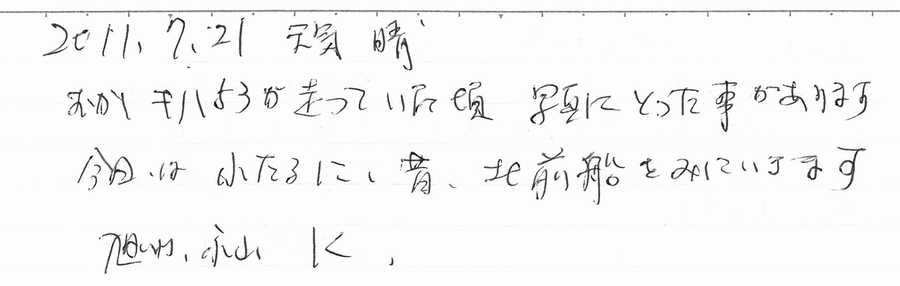 2011.7.21 天気 晴
むかし キハ53が走っていた頃 写真にとった事があります
今日は 小たるに、昔、北前船をみにいきます
旭川、永山 K.